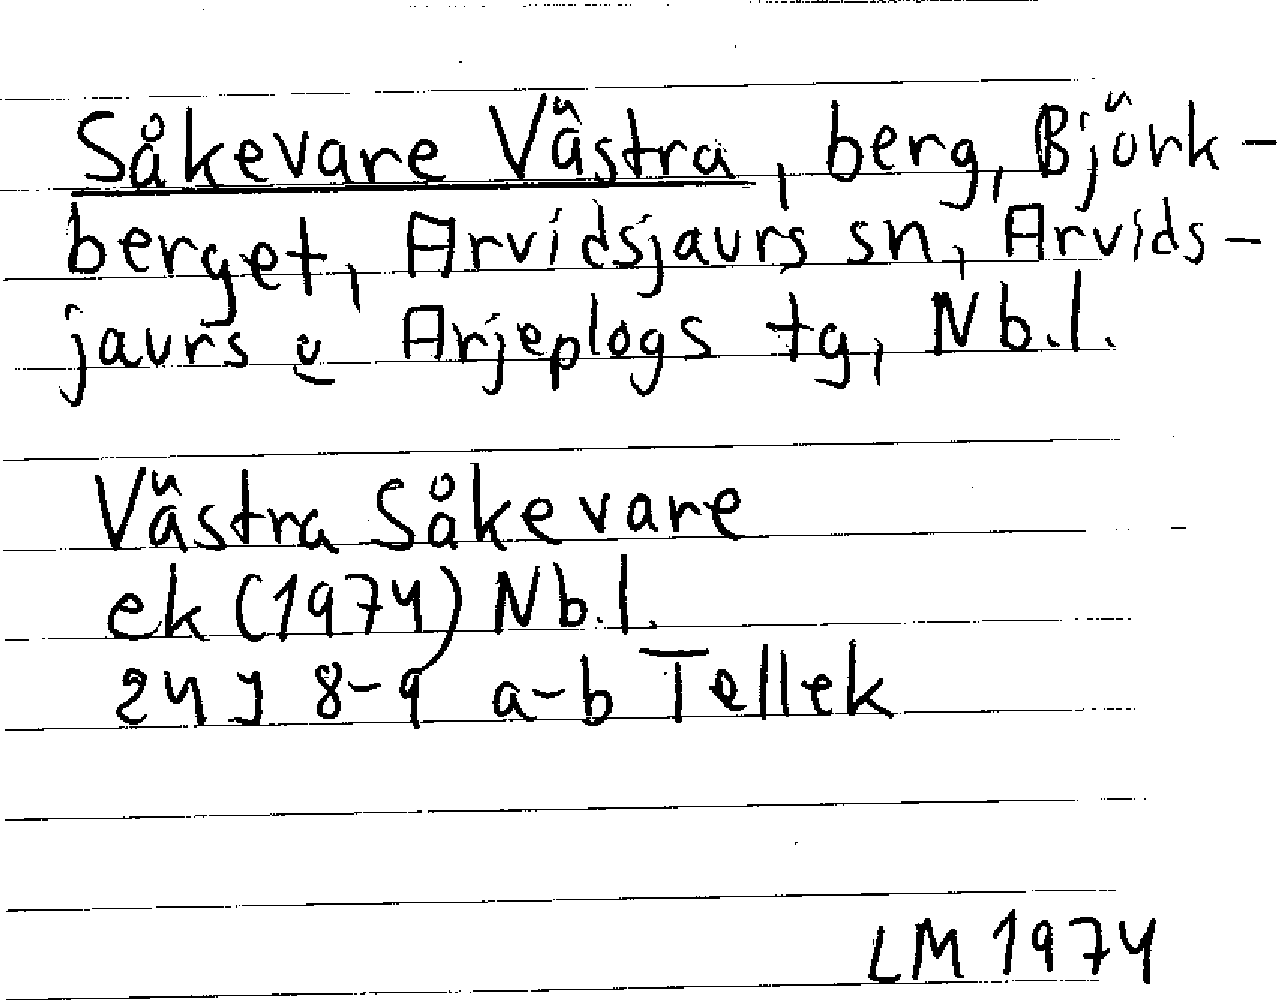 Såkevare Västra, berg, Björk-
berget, Arvidsjaurs sn, Arvids-
jaurs o Arjeplogs tg, Nb.l.
Västra Såkevare
ek (1974) Nb.l.
24 J 8-9 a-b Tellek
LM 1974